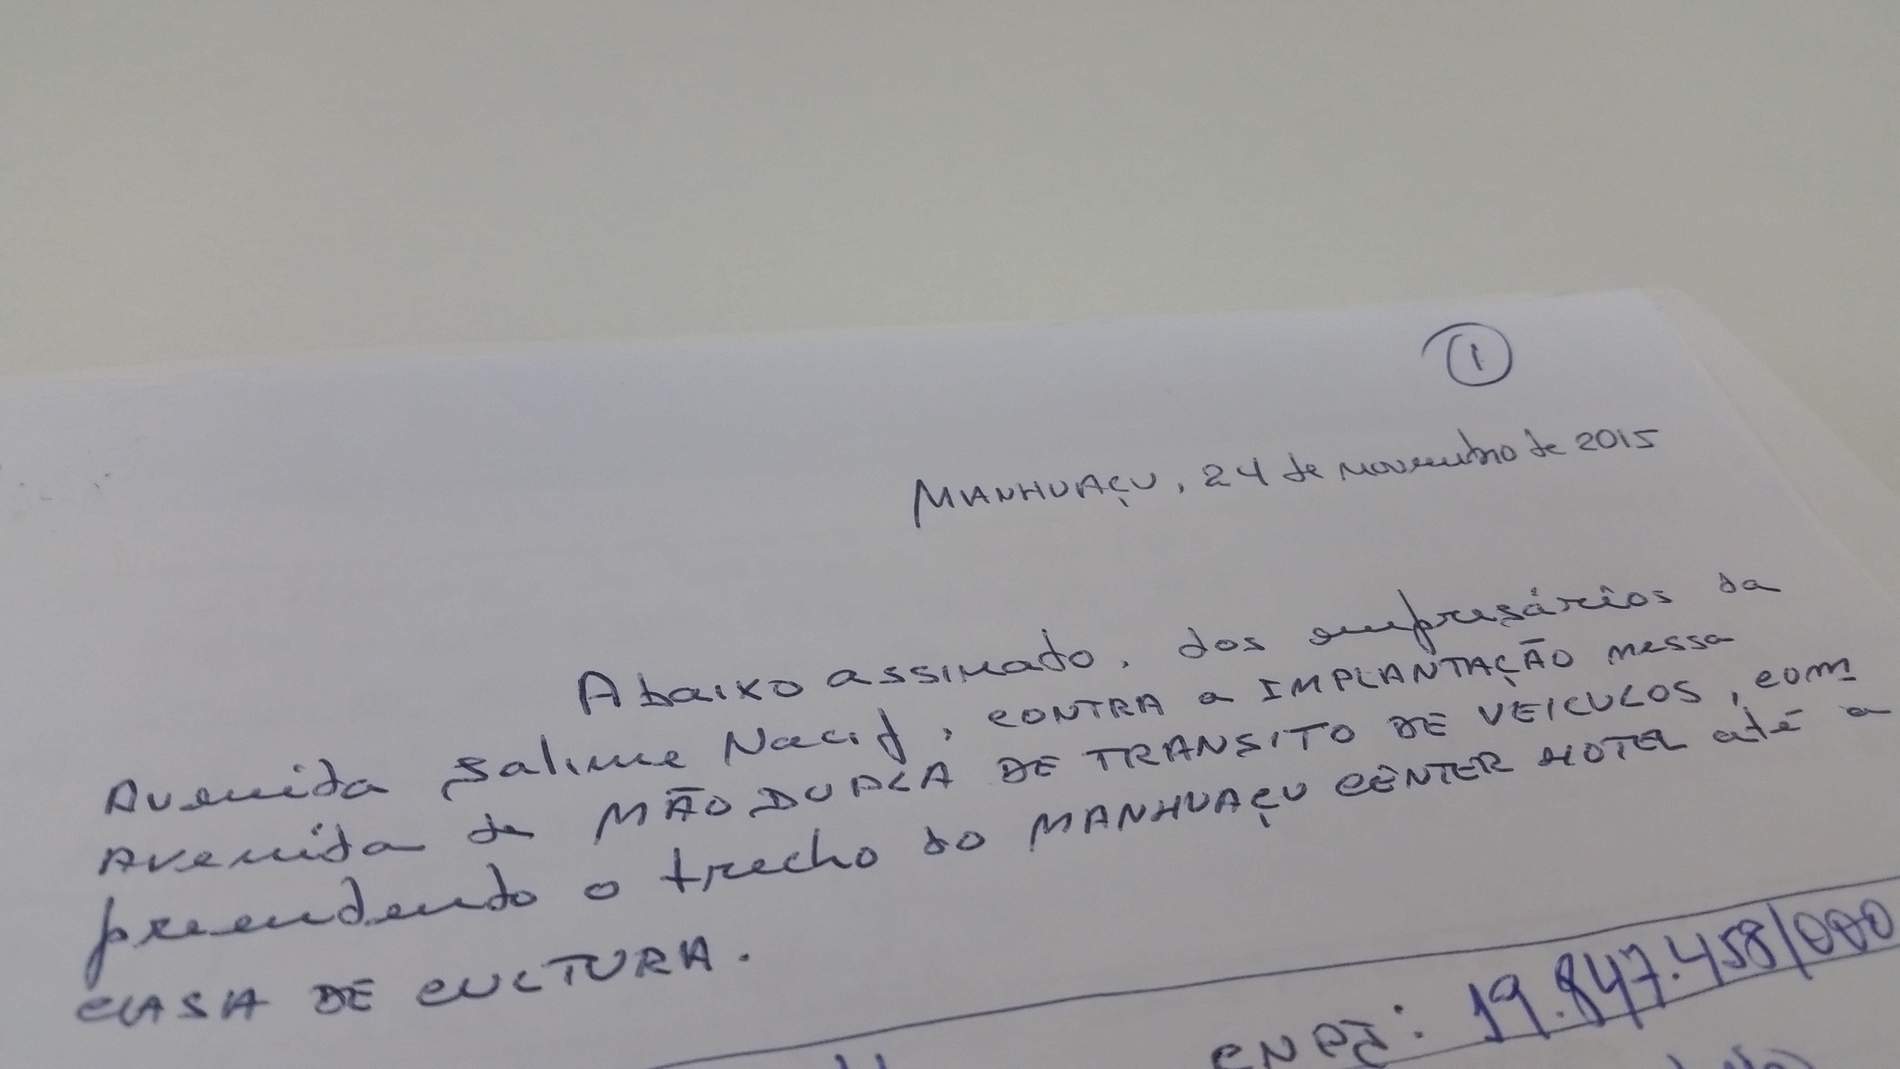 1
MANHUAÇU, 24 de novembro de 2015
Abaixo assinado, dos empresários da
Avenida Salime Nacif, CONTRA a IMPLANTAÇÃO nessa
Avenida de MÃO DUPLA DE TRANSITO DE VEICULOS, com
preendendo o trecho do MANHUAÇU CENTER HOTEL até a
CASA DE CULTURA.
CNPJ: 19.847.458/000